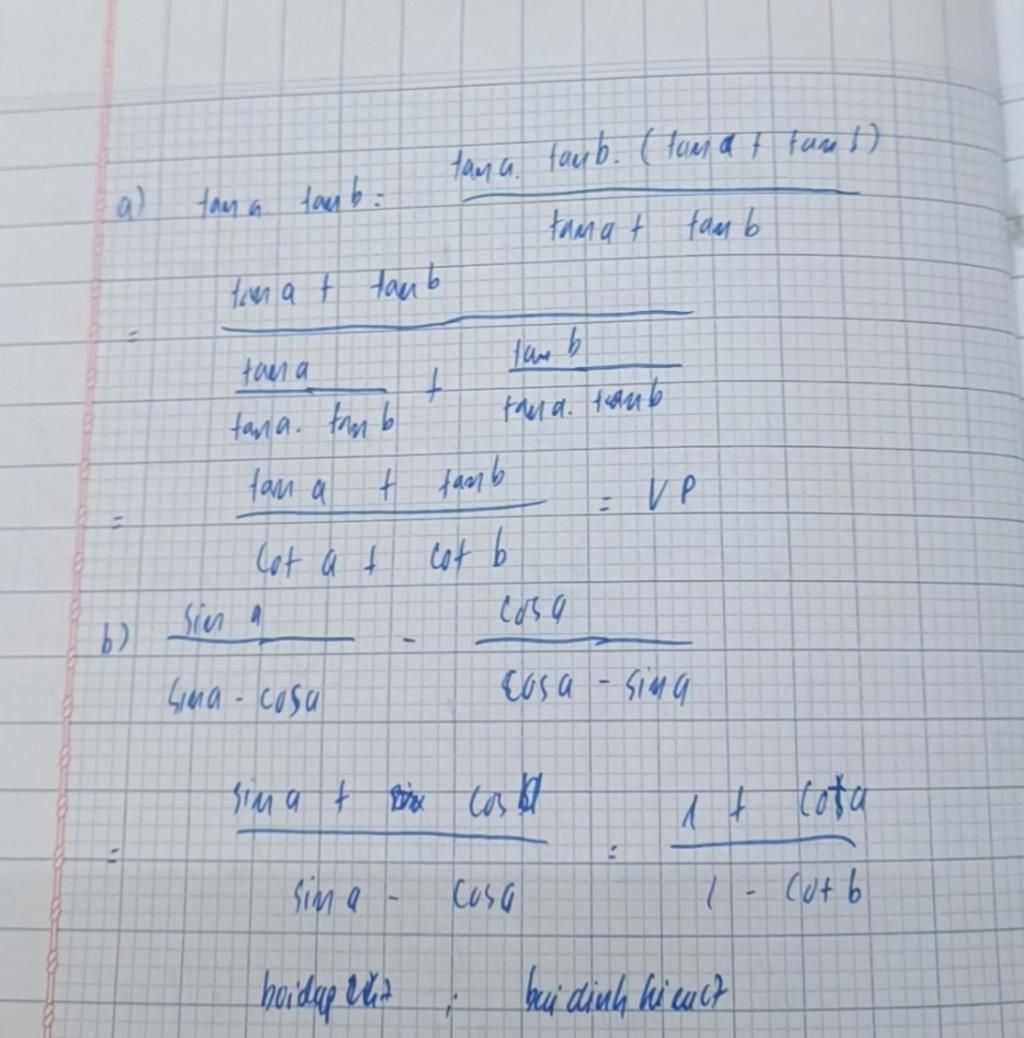 a) tan a tan b = tan a. tan b. (tan a + tan b) / tan a + tan b
= tan a + tan b / tan a / tan a. tan b + tan b / tan a. tan b
= tan a + tan b / cot a + cot b = VP
b) sin a / sin a - cos a - cos a / cos a - sin a
= sin a + cos a / sin a - cos a = 1 + cot a / 1 - cot b